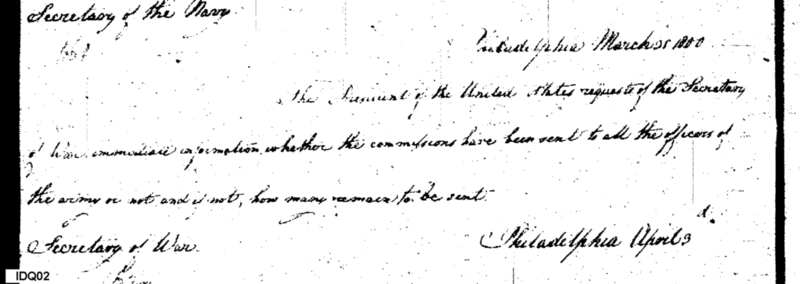 Secretary of the Navy.
Philadelphia March 31 1800
The President of the United States requests of the Secretary
of War immediate information, whether the commissions have been sent to all the officers of
the army or not and if not, how many remain to be sent.
Secretary of War.
Philadelphia April 3d.
IDQ02